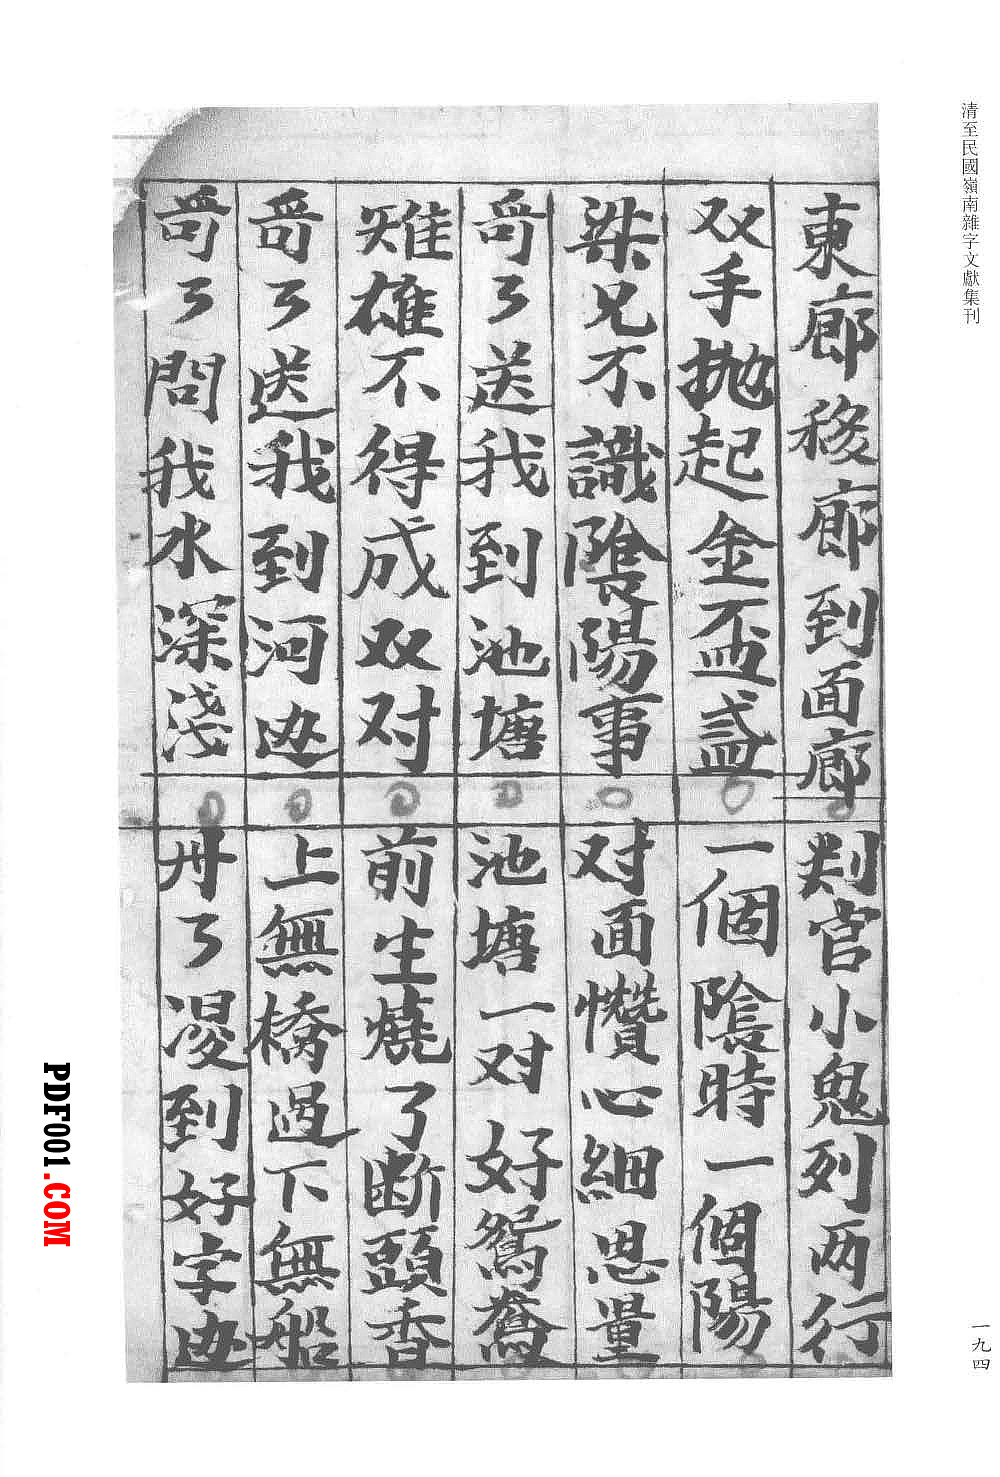 清至民國嶺南雜字文獻集刊
東廊移廊到面廊　判官小鬼列两行
双手抛起金盃盞　一個陰時一個陽
梁兄不識陰陽事　对面懺心細思量
哥了送我到池塘　池塘一对好鴛鴦
雉雄不得成双对　前生燒了断頭香
哥了送我到河边　上無橋过下無船
哥了問我水深淺　丹了浸到好字边
一九四
PDF001.COM